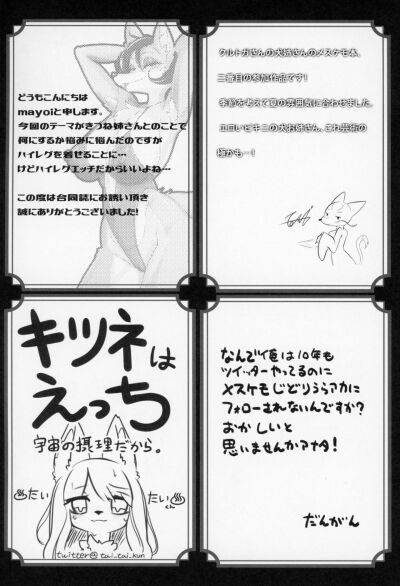 どうもこんにちは
mayoiと申します。
今回のテーマがきつね姉さんとのことで
何にするか悩みに悩んだのですが
ハイレグを着せることに…
けどハイレグエッチだからいいよね…
この度は合同誌にお誘い頂き
誠にありがとうございました!
クルトガさんの犬姉さんのメスケモ本、
二番目の参加作品です!
季節を考えて夏の雰囲気に合わせました。
エロいビキニの犬お姉さん、これ芸術の
極かも…!
キツネは
えっち
宇宙の摂理だから。
♨たい
たい♨
くん
twitter@tai_tai_kun
なんで俺は10年も
ツイッターやってるのに
メスケモじどりうらアカに
フォローされないんですか?
おかしいと
思いませんかアナタ!
だんがん